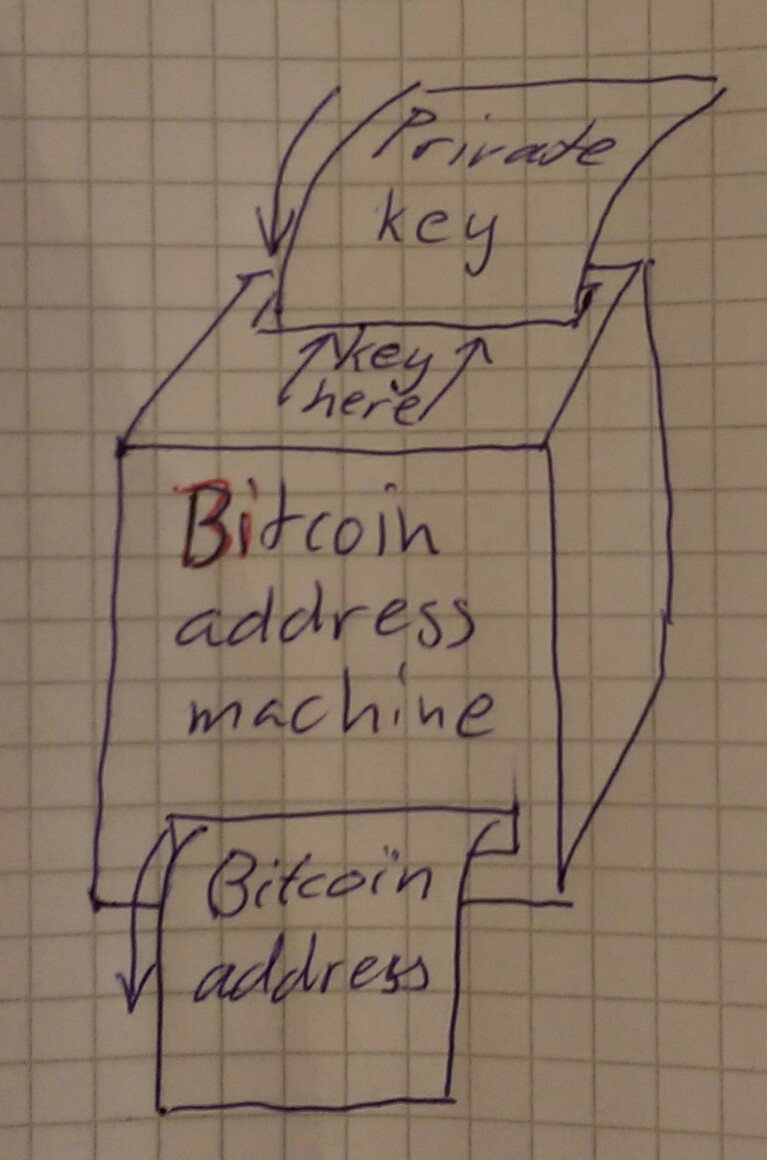 Private
key
key
here
Bitcoin
address
machine
Bitcoin
address